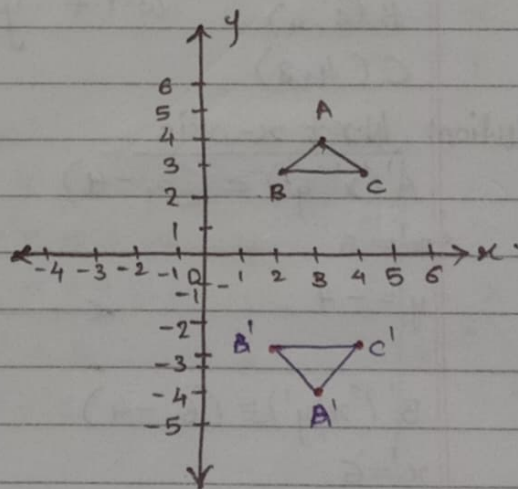 y
6
5
4
3
2
1
A
B C
-4 -3 -2 -1 0 -1 2 3 4 5 6 x
-1
-2
-3
-4
-5
B' C'
A'